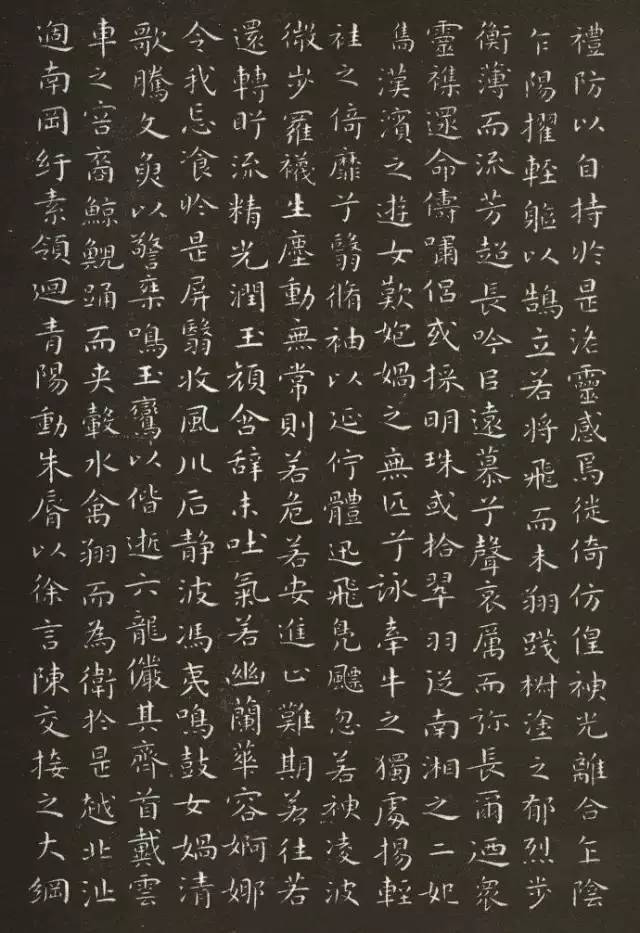 禮防以自持於是洛靈感焉徙倚仿偟神光離合乍陰
乍陽擢輕軀以鵠立若將飛而未翔踐椒塗之郁烈步
衡薄而流芳超長吟㠯遠慕兮聲哀厲而弥長爾迺衆
靈襍遝命儔嘯侶或採明珠或拾翠羽從南湘之二妃
雋漢濱之遊女歎匏媧之無匹兮詠牽牛之獨處揚輕
袿之倚靡兮翳脩袖以延佇體迅飛鳧飄忽若神凌波
微步羅襪生塵動無常則若危若安進止難期若往若
還轉眄流精光潤玉顏含辭未吐氣若幽蘭華容婀娜
令我忘飡於是屏翳收風川后静波馮夷鳴鼓女媧清
歌騰文魚以警乘鳴玉鸞以偕逝六龍儼其齊首戴雲
車之容裔鯨鯢踊而夾轂水禽翔而為衛於是越北沚
過南岡紆素領迴青陽動朱脣以徐言陳交接之大綱